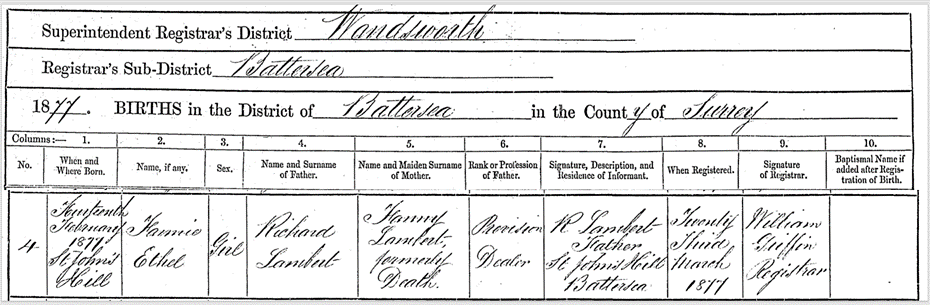 Superintendent Registrar's District Wandsworth
Registrar's Sub-District Battersea
1877. BIRTHS in the District of Battersea in the County of Surrey
Columns:— 1. 2. 3. 4. 5. 6. 7. 8. 9. 10.
No. When and Where Born. Name, if any. Sex. Name and Surname of Father. Name and Maiden Surname of Mother. Rank or Profession of Father. Signature, Description, and Residence of Informant. When Registered. Signature of Registrar. Baptismal Name if added after Registration of Birth.
4
Fourteenth
February
1877
St John's
Hill
Fannie
Ethel
Girl
Richard
Lambert
Fanny
Lambert,
formerly
Death.
Provision
Dealer
R Lambert
Father
St John's Hill
Battersea
Twenty
Third
March
1877
William
Griffin
Registrar